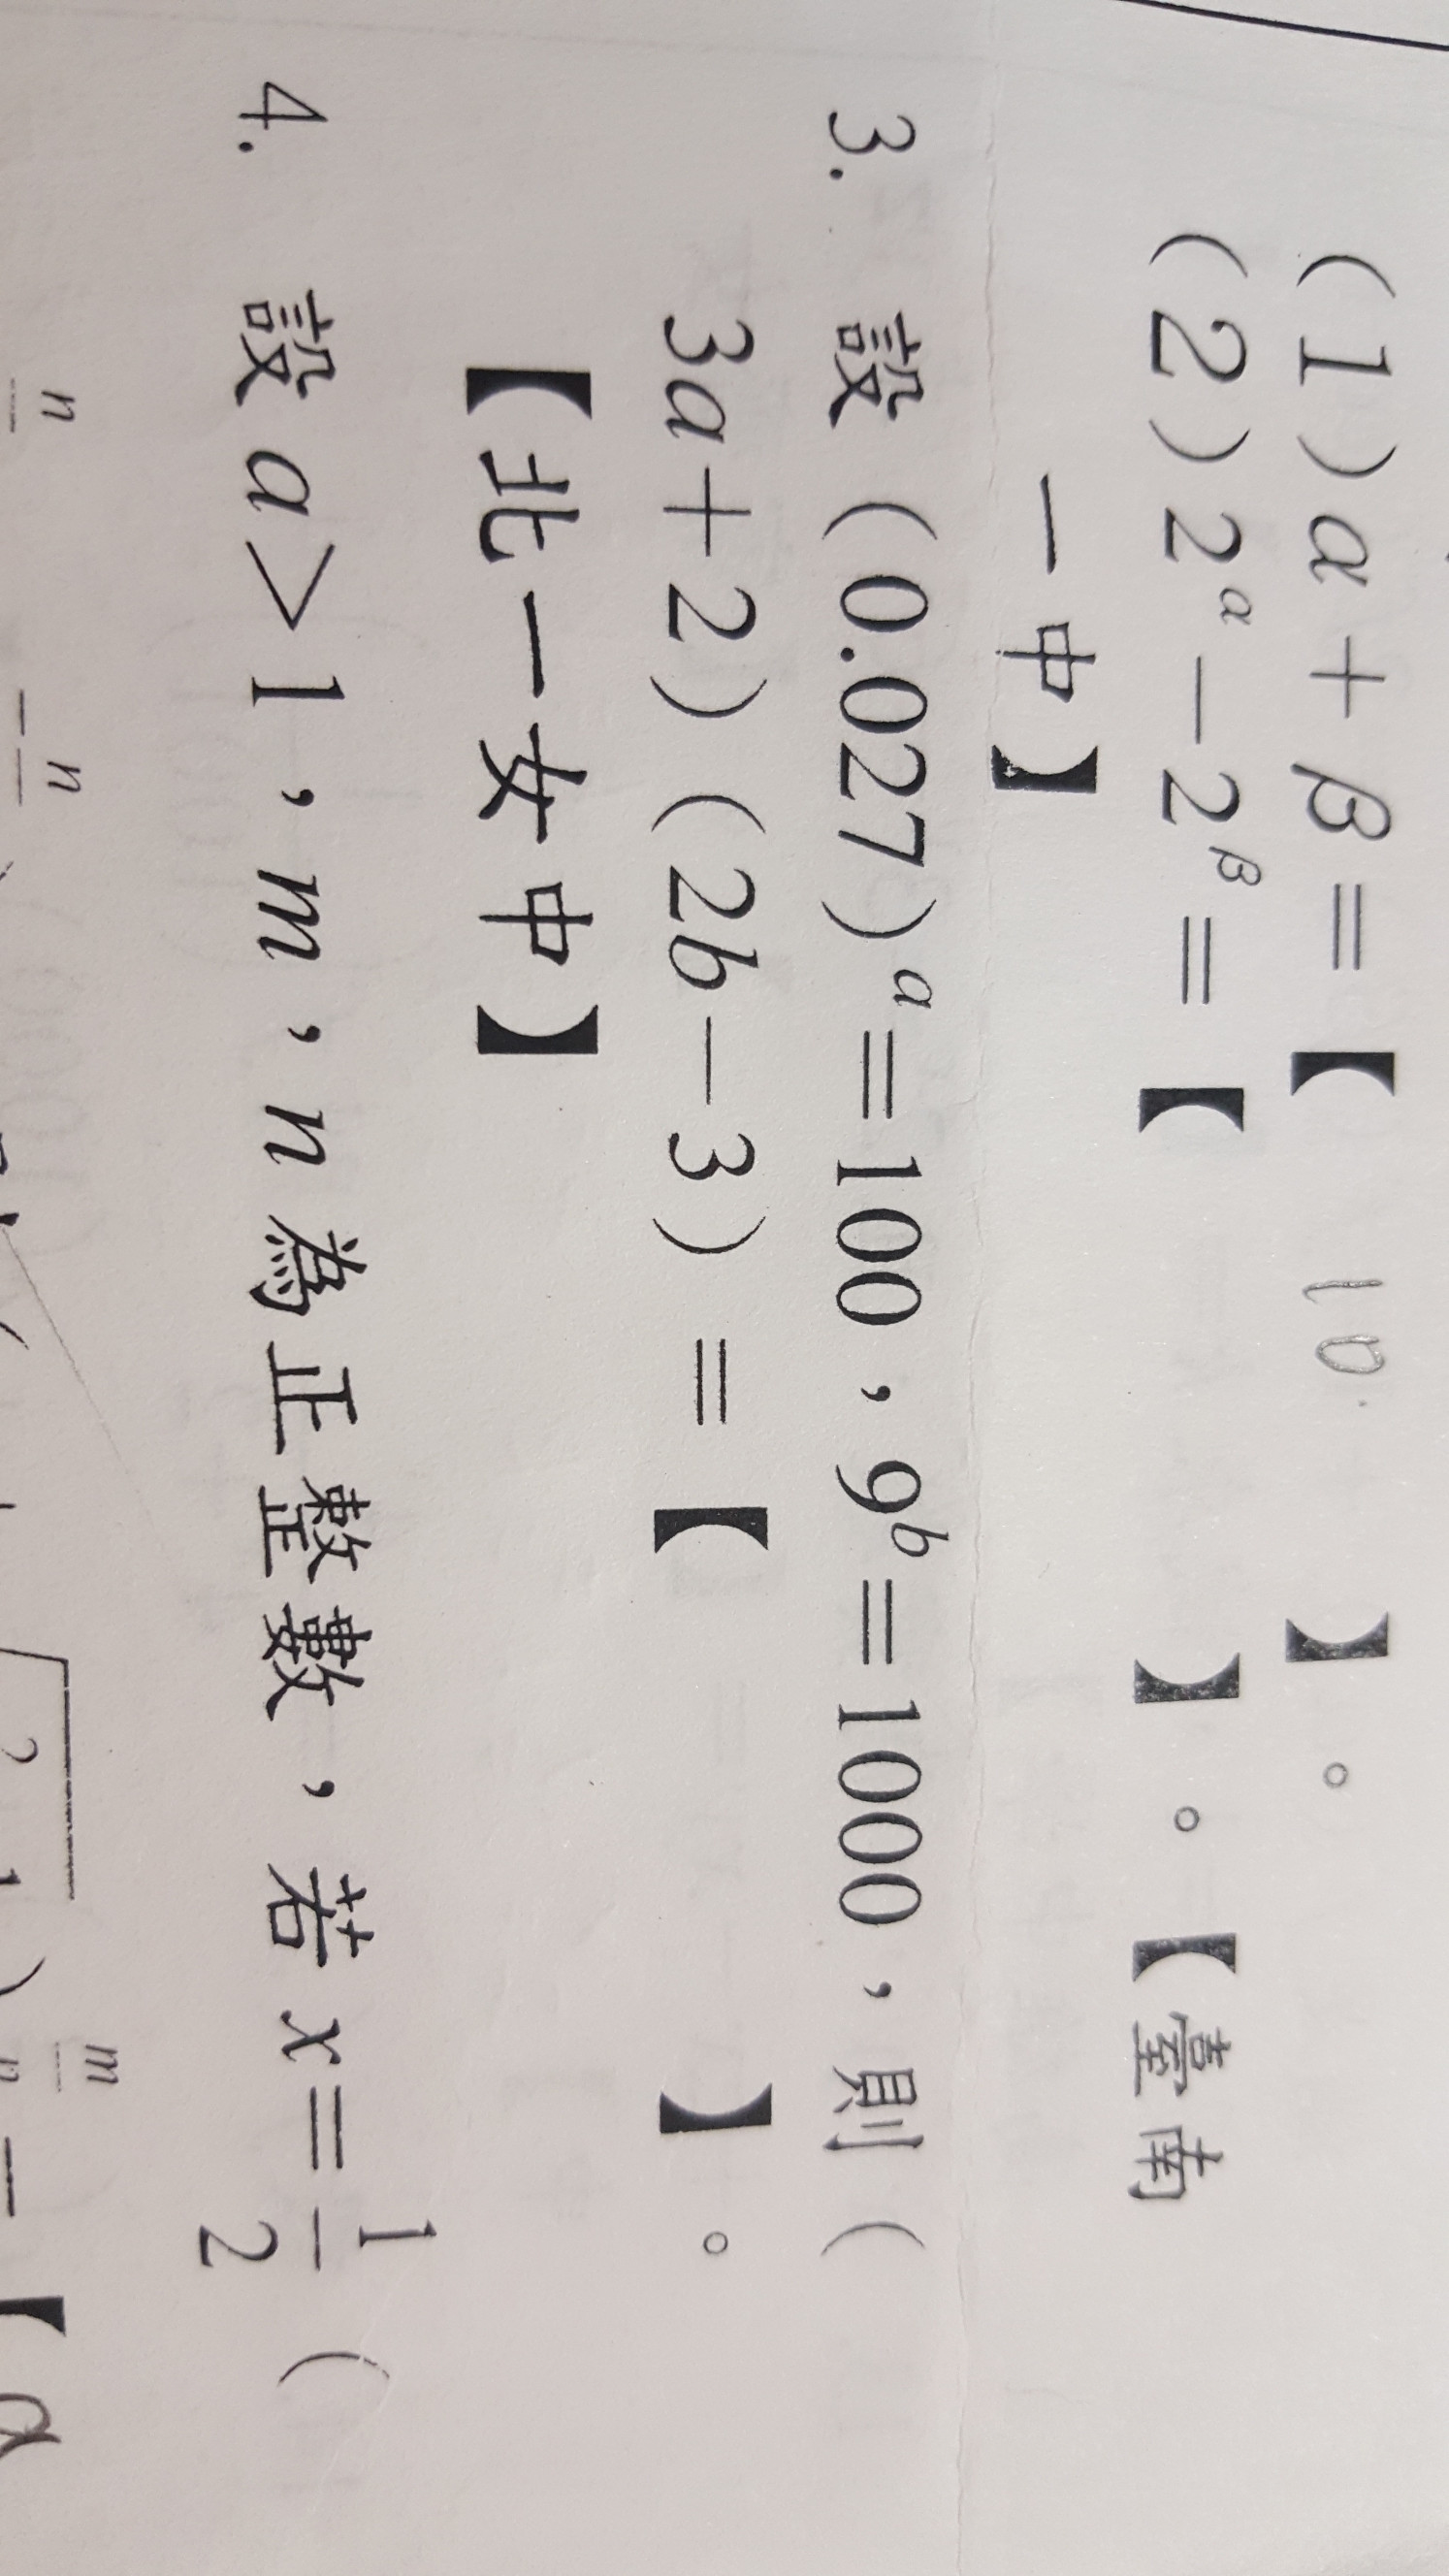 (1) α + β = 【 10 】。
(2) 2^α − 2^β = 【 】。【臺南
一中】
3. 設 (0.027)^a = 100，9^b = 1000，則 (
3a + 2) (2b − 3) = 【 】。
【北一女中】
4. 設 a > 1，m，n 為正整數，若 x = 1/2 (